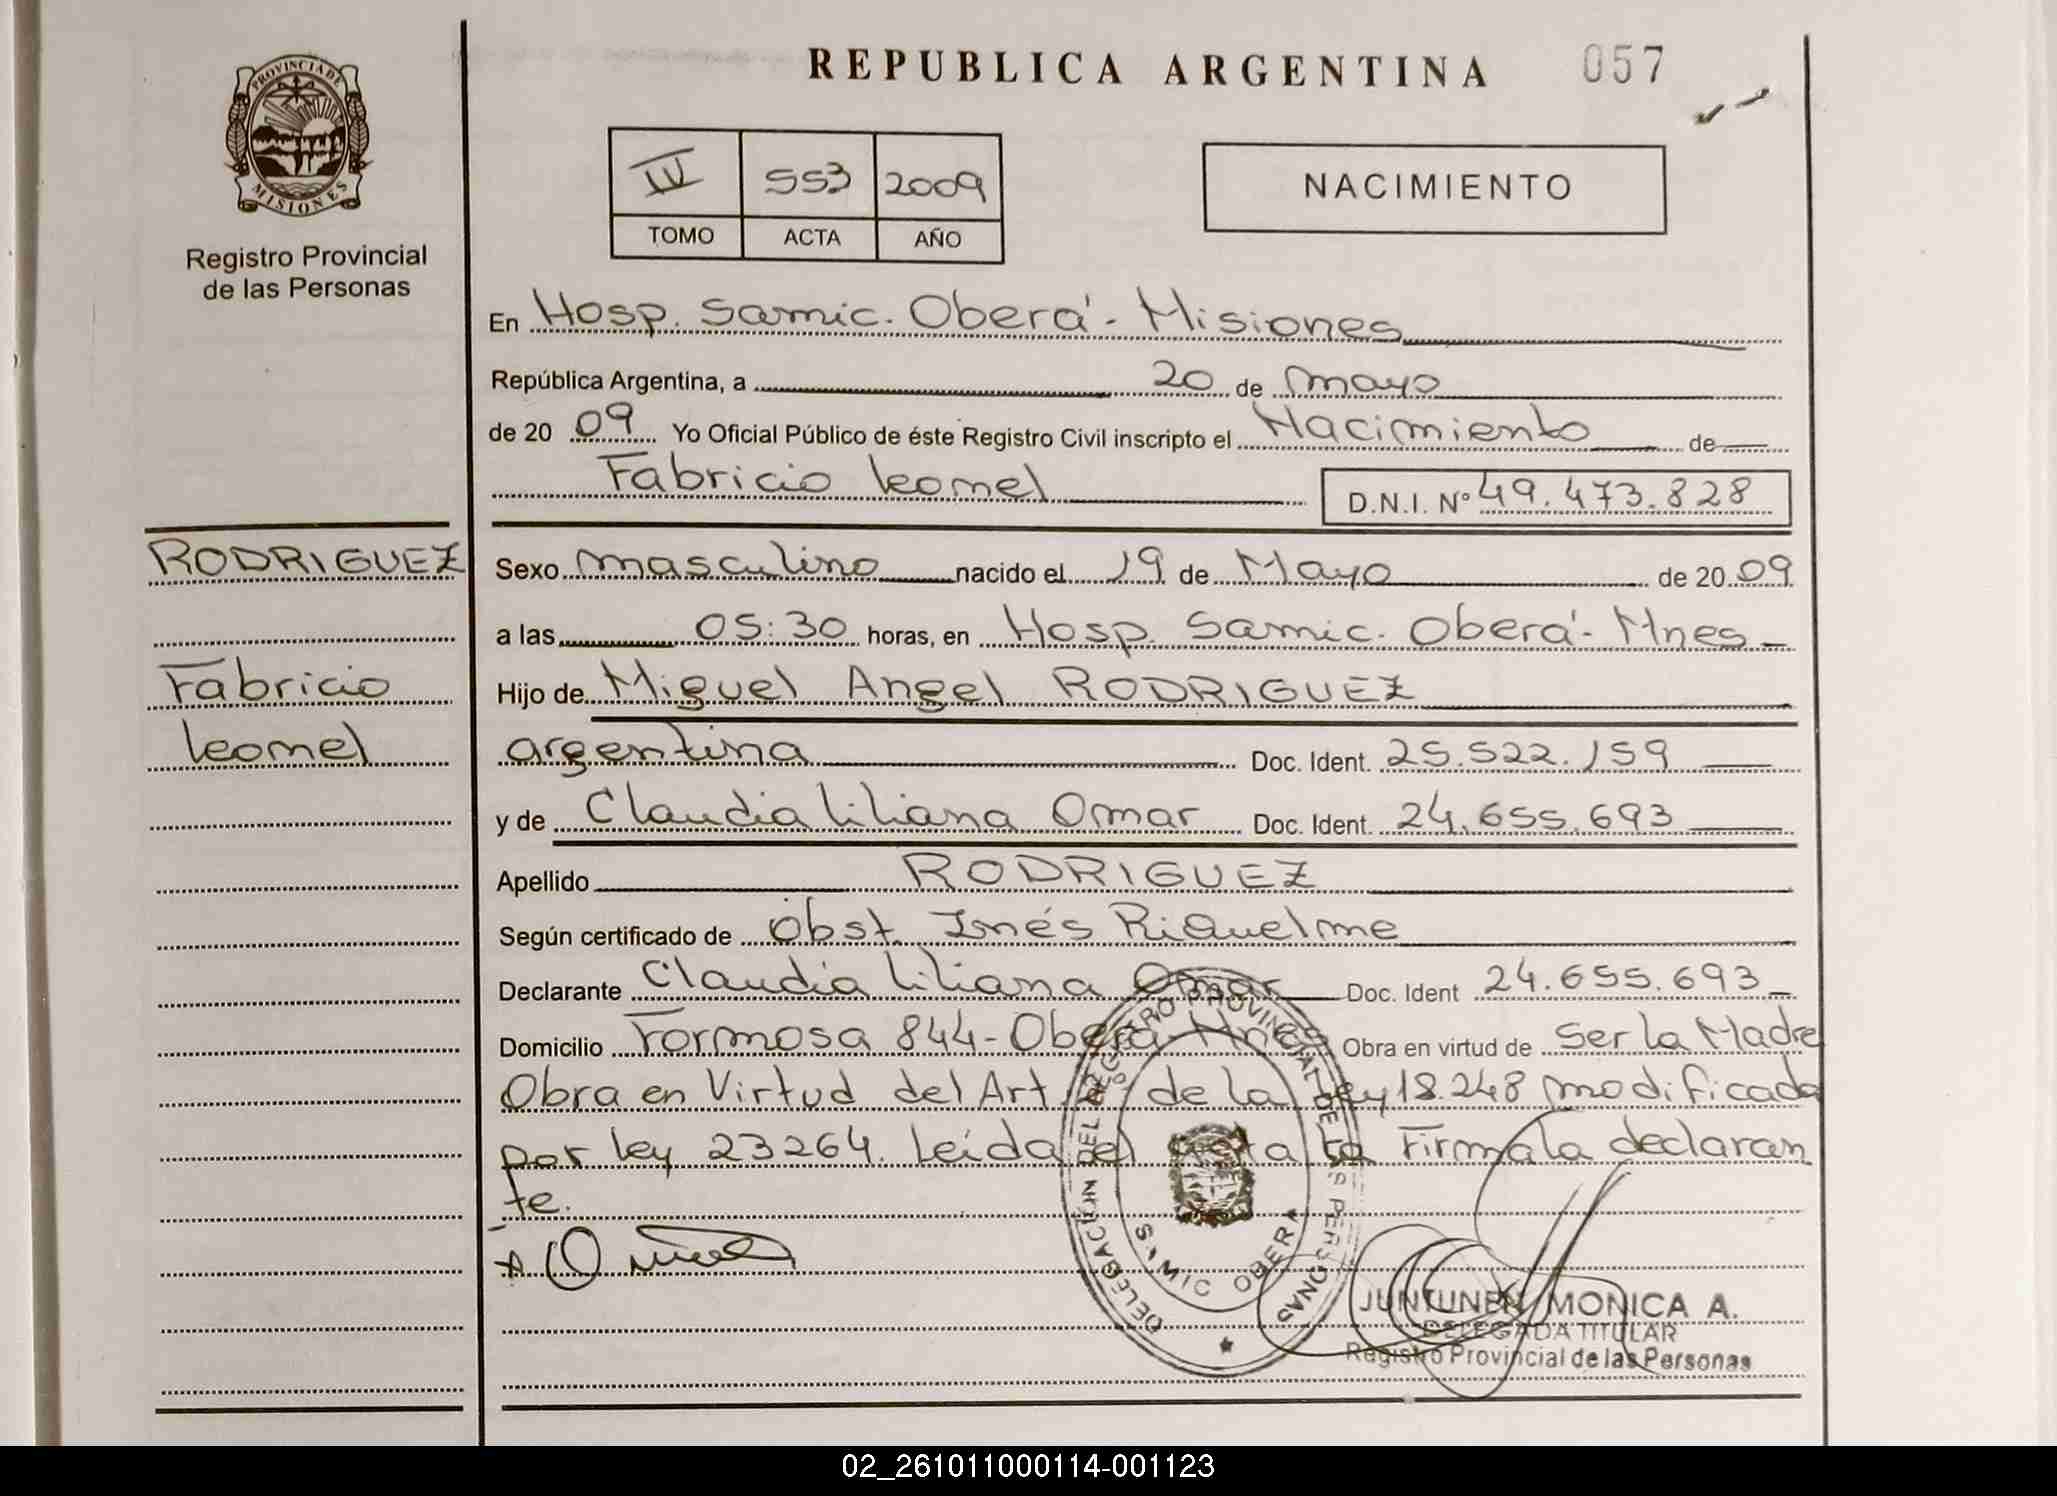 REPUBLICA ARGENTINA 057
PROVINCIA DE
MISIONES
Registro Provincial
de las Personas
IV 553 2009
TOMO ACTA AÑO
NACIMIENTO
En Hosp. Samic. Oberá - Misiones
República Argentina, a 20 de mayo
de 20 09 Yo Oficial Público de éste Registro Civil inscripto el Nacimiento de
Fabricio Leonel D.N.I. Nº 49.473.828
RODRIGUEZ
Fabricio
Leonel
Sexo masculino nacido el 19 de Mayo de 20 09
a las 05:30 horas, en Hosp. Samic. Oberá - Mnes
Hijo de Miguel Angel RODRIGUEZ
argentina Doc. Ident. 25.522.159
y de Claudia Liliana Omar Doc. Ident. 24.655.693
Apellido RODRIGUEZ
Según certificado de Obst. Inés Riquelme
Declarante Claudia Liliana Omar Doc. Ident 24.655.693
Domicilio Formosa 844 - Oberá - Mnes Obra en virtud de Ser la Madre
Obra en Virtud del Art. de la Ley 18.248 modificada
por ley 23264. Leída el acta la Firma la declaran
te.
DELEGACIÓN DEL REGISTRO PROVINCIAL DE LAS PERSONAS
SAMIC OBERA
JUNTUNEN MONICA A.
DELEGADA TITULAR
Registro Provincial de las Personas
02_261011000114-001123